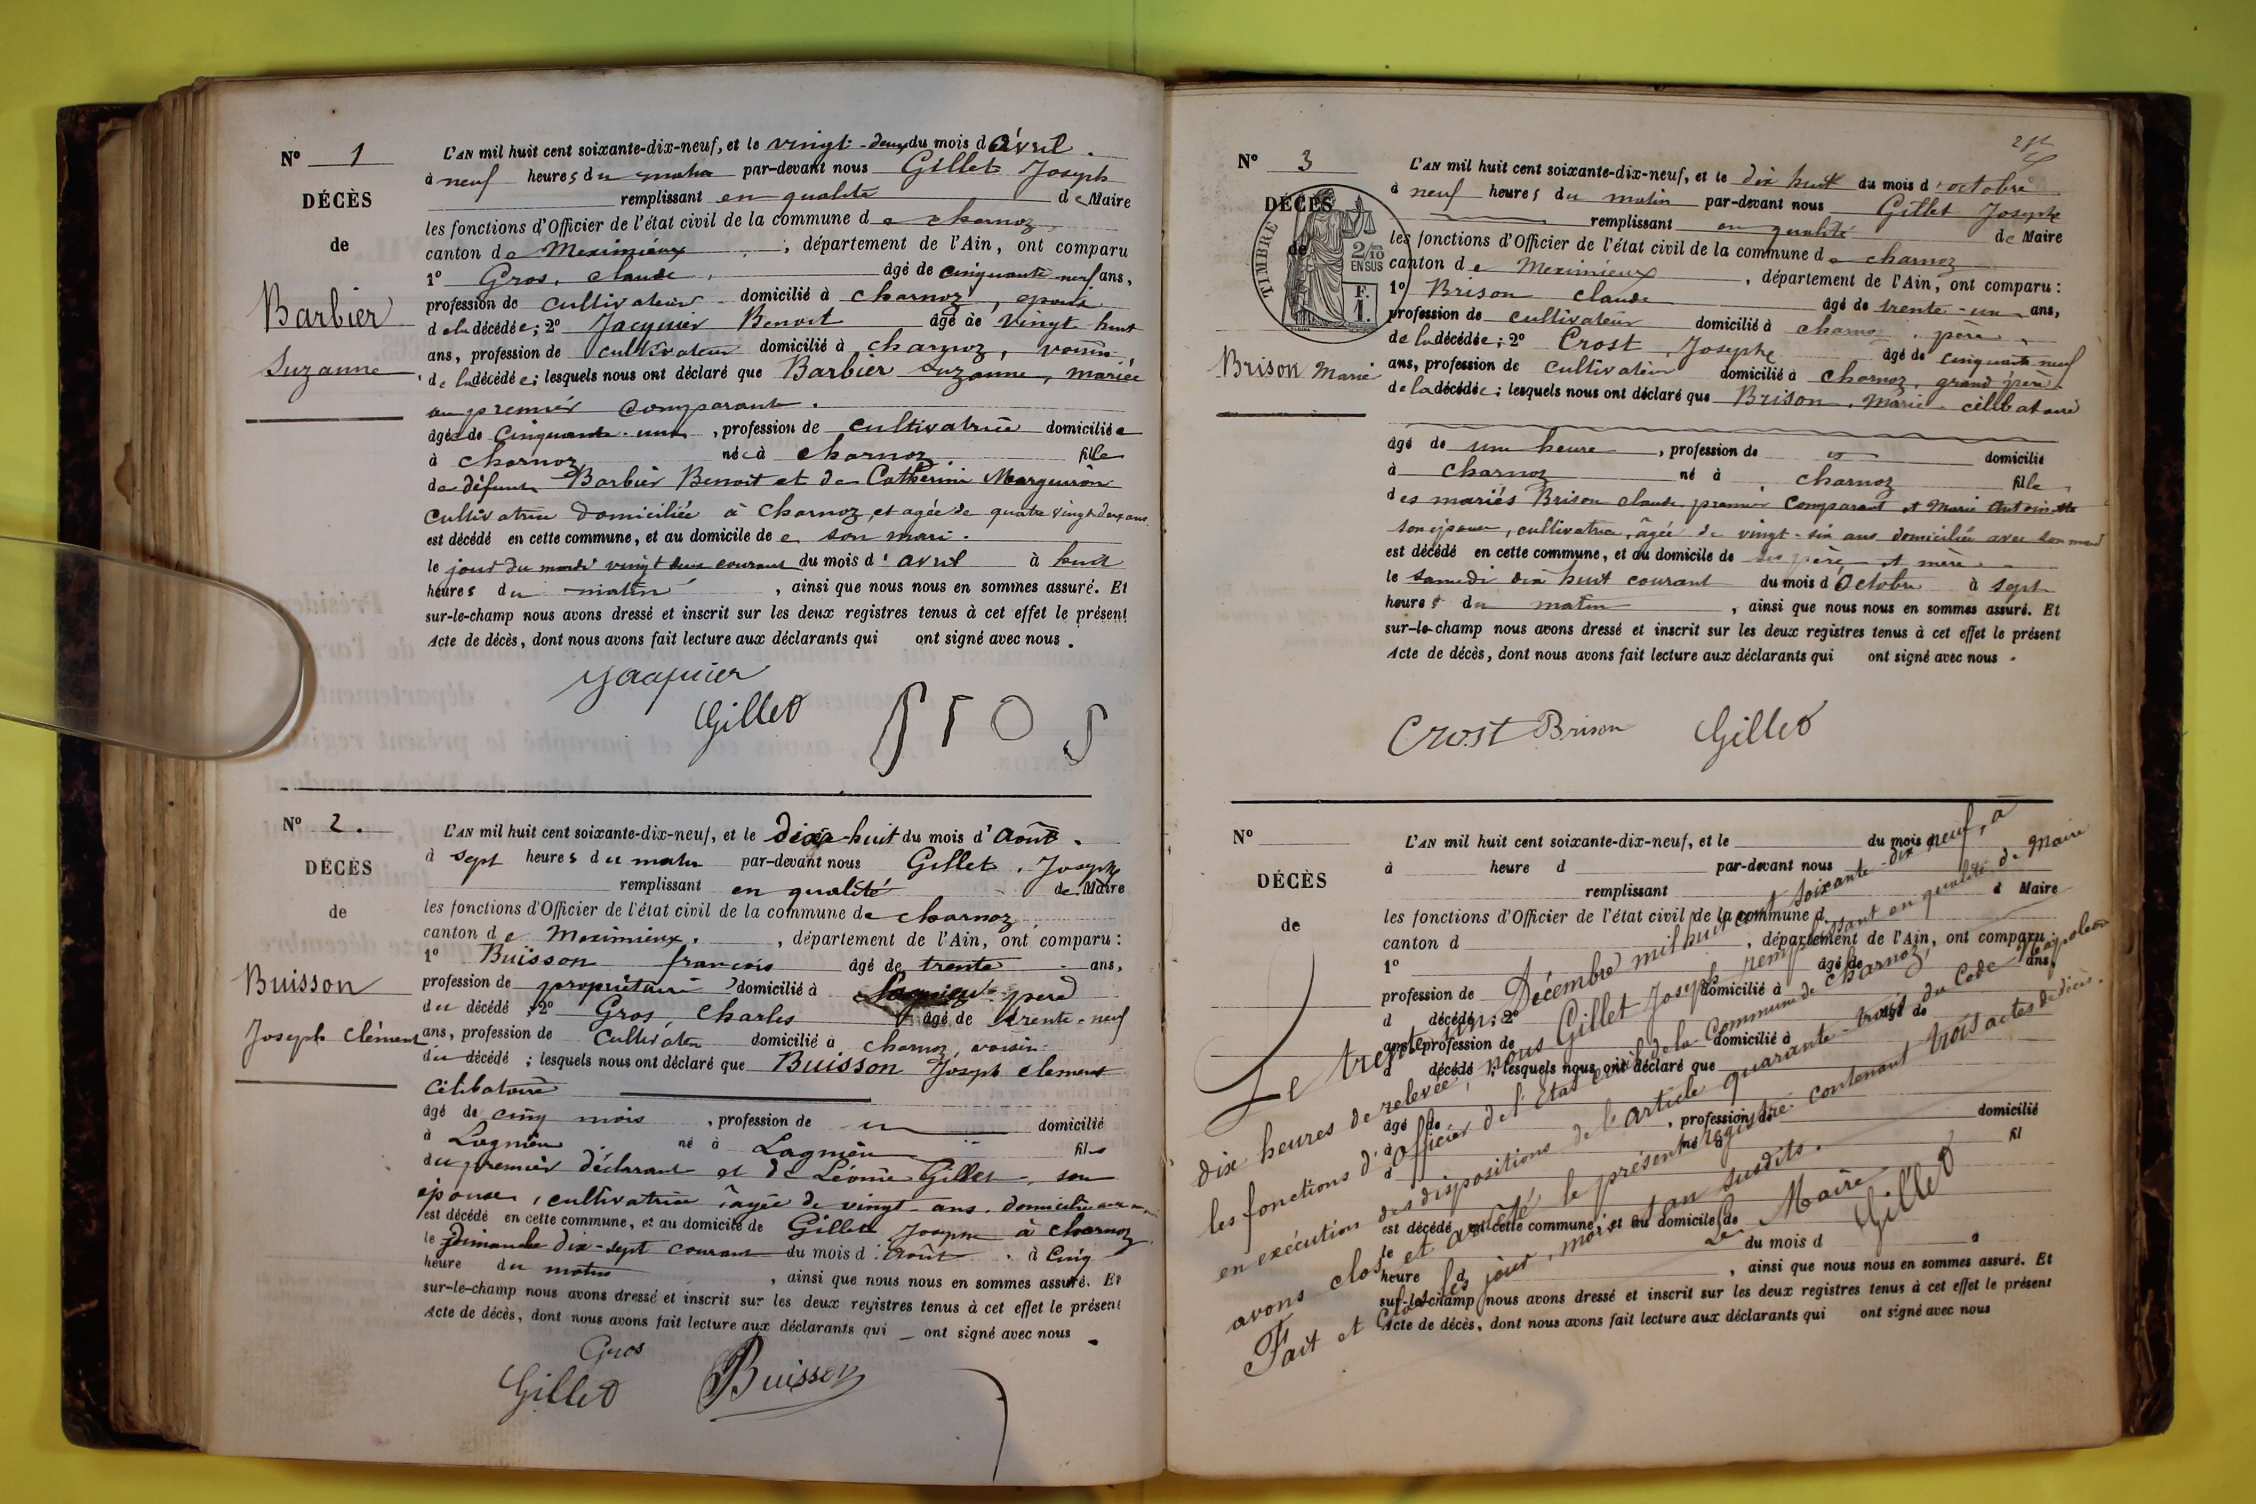 N° 1
DÉCÈS
de
Barbier
Suzanne
L'AN mil huit cent soixante-dix-neuf, et le vingt-deux du mois d avril.
à neuf heures du matin par-devant nous Gillet Joseph
remplissant en qualité de Maire
les fonctions d'Officier de l'état civil de la commune de charnoz
canton de Meximieux, département de l'Ain, ont comparu
1° Gros, claude, âgé de cinquante neuf ans,
profession de cultivateur domicilié à charnoz, epoux
de la décédée; 2° Jacquier Benoit âgé de vingt huit
ans, profession de cultivateur domicilié à charnoz, voisin,
de la décédée; lesquels nous ont déclaré que Barbier Suzanne, mariée
au premier comparant.
âgée de cinquante-un, profession de cultivatrice domiciliée
à charnoz née à charnoz fille
de défunt Barbier Benoit et de Catherine
cultivatrice domiciliée à charnoz, et agée de quatre vingt deux ans
est décédé en cette commune, et au domicile de son mari.
le jour du mardi vingt deux courant du mois d'avril à huit
heures du matin, ainsi que nous nous en sommes assuré. Et
sur-le-champ nous avons dressé et inscrit sur les deux registres tenus à cet effet le présent
Acte de décès, dont nous avons fait lecture aux déclarants qui ont signé avec nous.
Jacquier
Gillet Gros
N° 2.
DÉCÈS
de
Buisson
Joseph Clément
L'AN mil huit cent soixante-dix-neuf, et le dix-huit du mois d'Août.
à sept heures du matin par-devant nous Gillet, Joseph
remplissant en qualité de Maire
les fonctions d'Officier de l'état civil de la commune de charnoz
canton de Meximieux, département de l'Ain, ont comparu:
1° Buisson françois âgé de trente ans,
profession de propriétaire domicilié à Lagnieu père
du décédé; 2° Gros, Charles âgé de trente-neuf
ans, profession de cultivateur domicilié à charnoz, voisin
du décédé; lesquels nous ont déclaré que Buisson Joseph clement
célibataire
âgé de cinq mois, profession de domicilié
à Lagnieu né à Lagnieu fils
du premier déclarant et de Léonie Gillet, son
épouse, cultivatrice, âgée de vingt ans, domiciliée
est décédé en cette commune, et au domicile de Gillet Joseph à charnoz
le Dimanche dix-sept courant du mois d'août à cinq
heure du matin, ainsi que nous nous en sommes assuré. Et
sur-le-champ nous avons dressé et inscrit sur les deux registres tenus à cet effet le présent
Acte de décès, dont nous avons fait lecture aux déclarants qui ont signé avec nous
Gros
Gillet Buisson
N° 3
DÉCÈS
de
TIMBRE
2/10
EN SUS
F.
1.
Brison Marie
L'AN mil huit cent soixante-dix-neuf, et le dix huit du mois d'octobre
à neuf heures du matin par-devant nous Gillet Joseph
remplissant en qualité de Maire
les fonctions d'Officier de l'état civil de la commune de charnoz
canton de Meximieux, département de l'Ain, ont comparu:
1° Brison claude âgé de trente-un ans,
profession de cultivateur domicilié à charnoz, père
de la décédée; 2° Crost, Joseph âgé de cinquante neuf
ans, profession de cultivateur domicilié à charnoz, grand père
de la décédée; lesquels nous ont déclaré que Brison, Marie célibataire
âgé de une heure, profession de domicilié
à charnoz né à charnoz fille
des mariés Brison claude, premier comparant et Marie Antoinette
son épouse, cultivatrice, âgée de vingt-six ans domiciliée avec son mari
est décédé en cette commune, et au domicile de ses père et mère
le samedi dix huit courant du mois d'Octobre à sept
heures du matin, ainsi que nous nous en sommes assuré. Et
sur-le-champ nous avons dressé et inscrit sur les deux registres tenus à cet effet le présent
Acte de décès, dont nous avons fait lecture aux déclarants qui ont signé avec nous.
Crost Brison Gillet
N°
DÉCÈS
de
L'AN mil huit cent soixante-dix-neuf, et le du mois d
à heure d par-devant nous
remplissant d Maire
les fonctions d'Officier de l'état civil de la commune d
canton d, département de l'Ain, ont comparu:
1° âgé de ans,
profession de domicilié à
d décédé; 2° âgé de
ans, profession de domicilié à
d décédé; lesquels nous ont déclaré que
âgé de, profession de domicilié
à né à fil
d
est décédé en cette commune, et au domicile de
le du mois d à
heure d, ainsi que nous nous en sommes assuré. Et
sur-le-champ nous avons dressé et inscrit sur les deux registres tenus à cet effet le présent
Acte de décès, dont nous avons fait lecture aux déclarants qui ont signé avec nous
Le trente-un Décembre mil huit cent soixante-dix neuf, à
dix heures de relevée, nous Gillet Joseph remplissant en qualité de Maire
les fonctions d'Officier de l'Etat civil de la Commune de Charnoz,
en exécution des dispositions de l'article quarante-trois du Code Napoléon
avons clos et arrêté le présent registre contenant trois actes de décès.
Fait et clos les jour, mois et an susdits.
Le Maire
Gillet